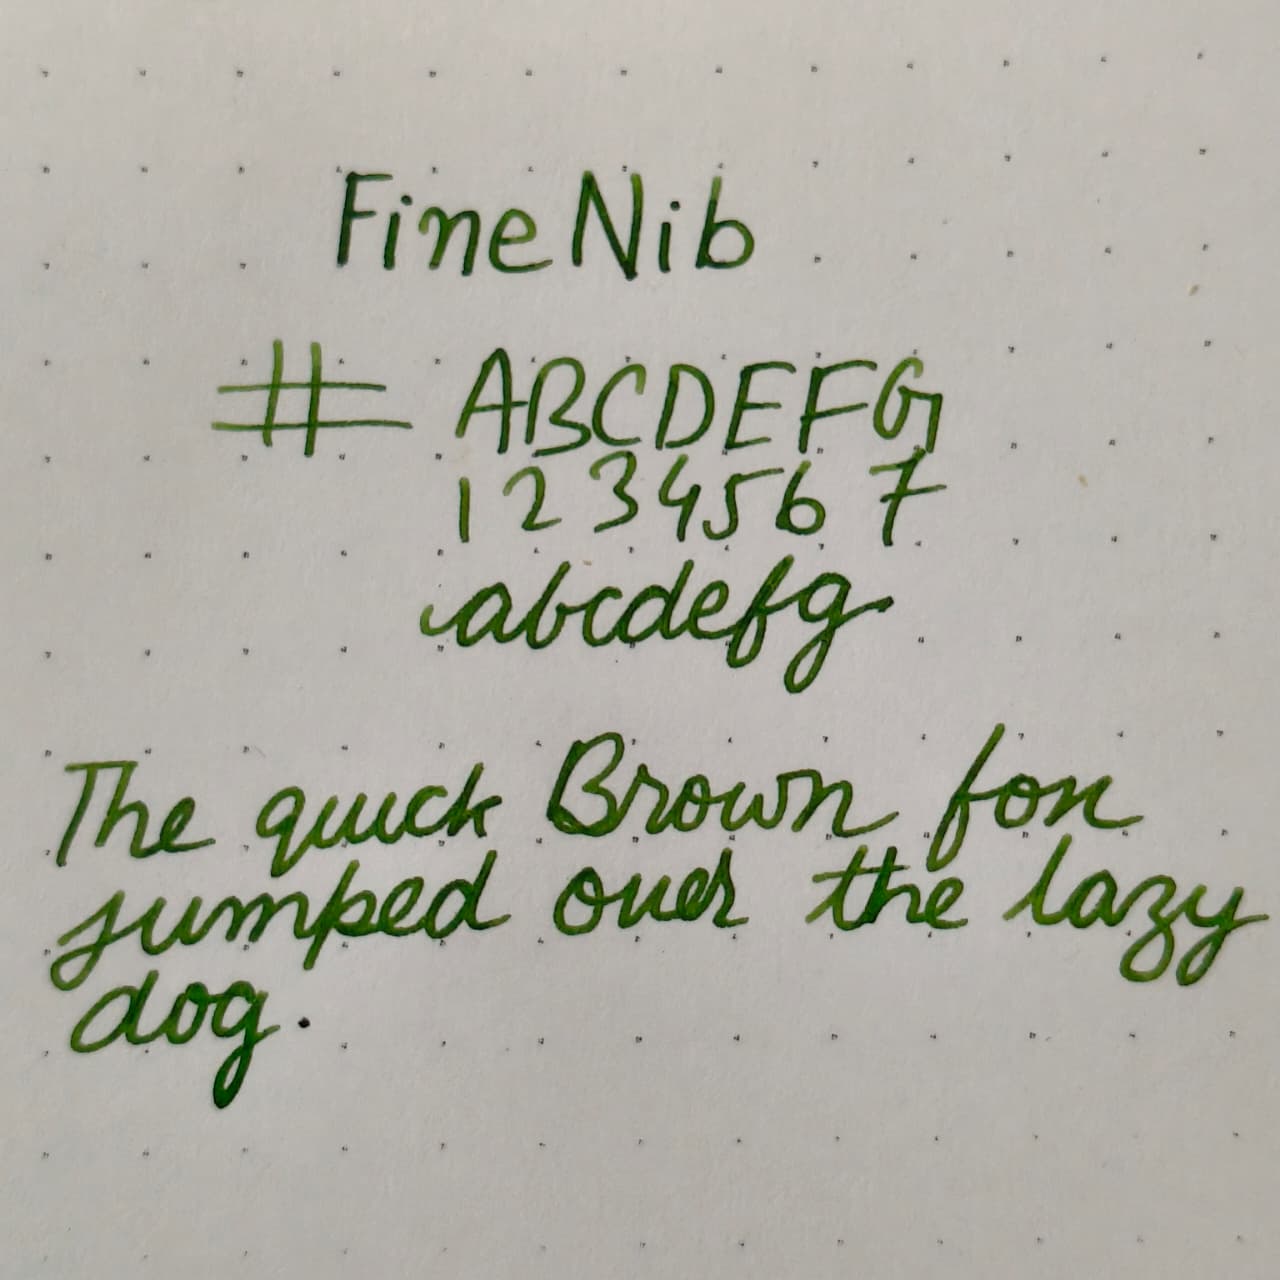 Fine Nib
# ABCDEFG
1 2 3 4 5 6 7
abcdefg
The quick Brown fox
jumped over the lazy
dog.